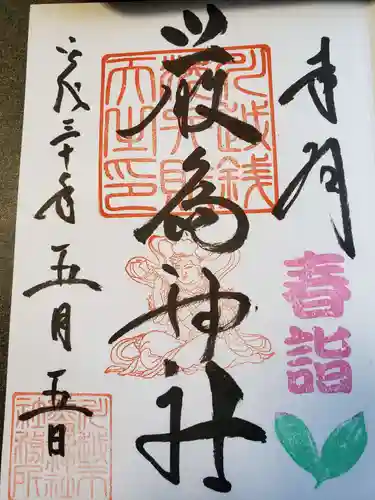 奉拝
春詣
厳島神社
川越銭
洗弁財
天之印
平成三十年五月五日